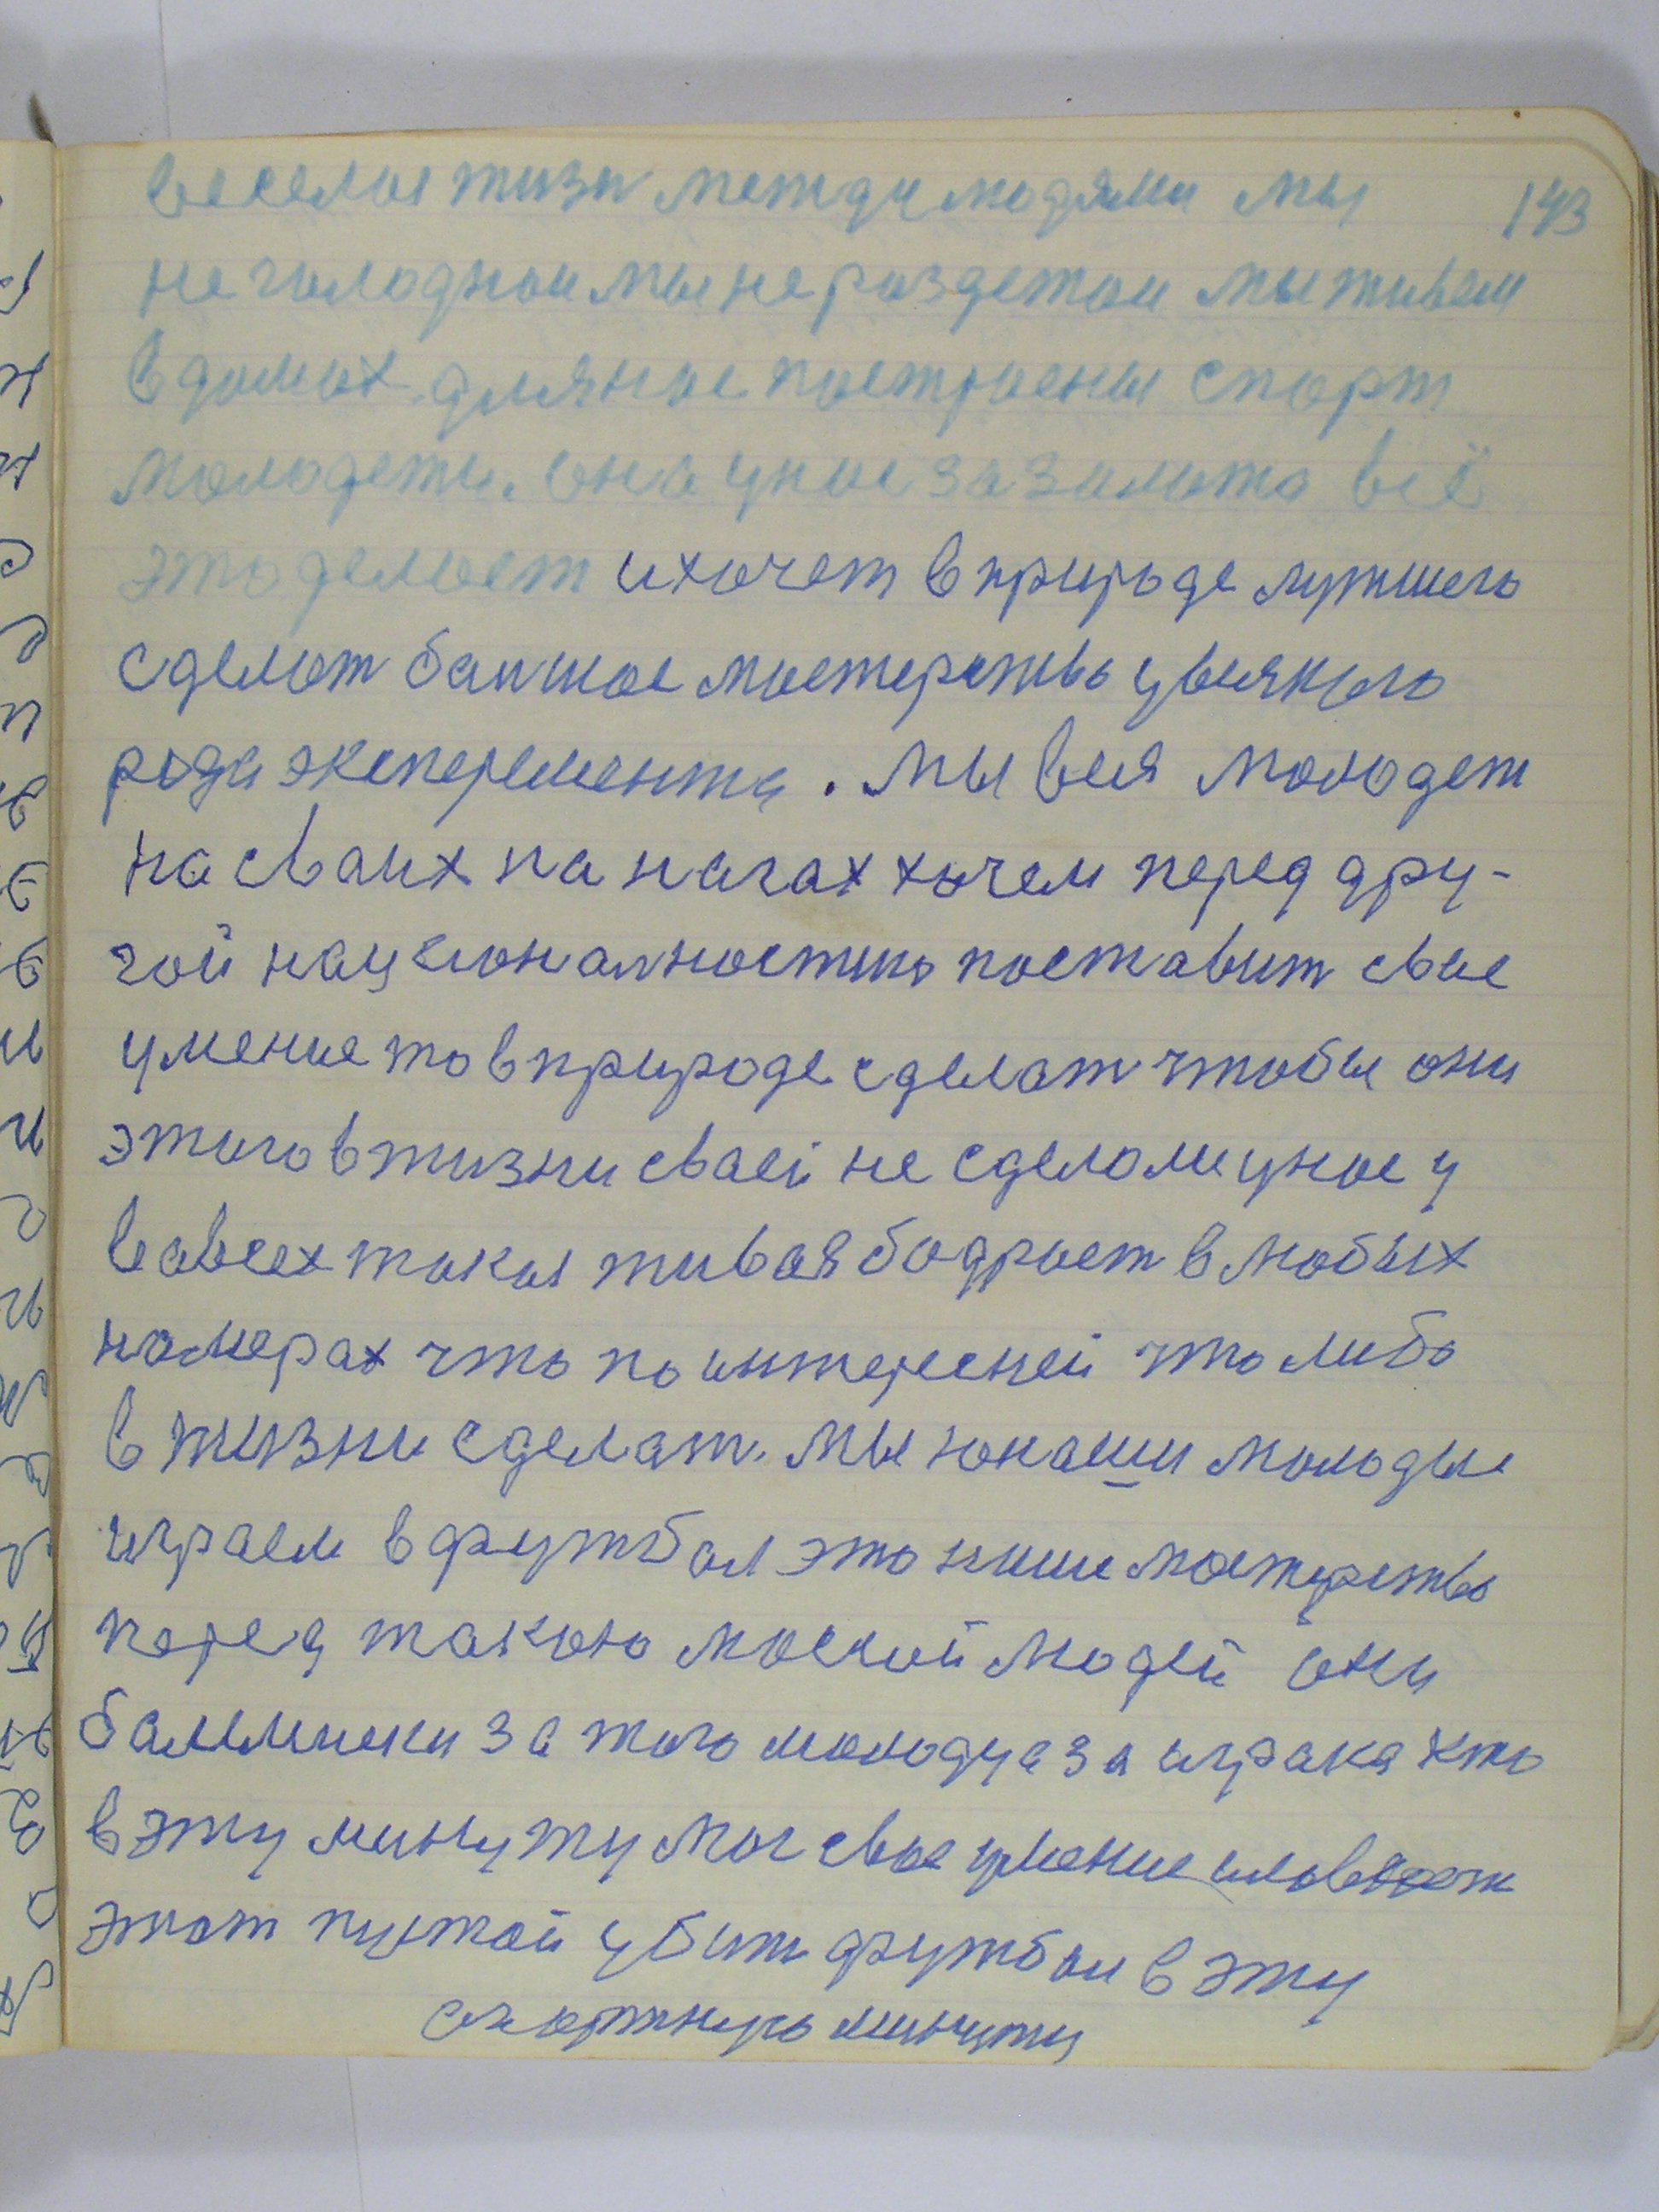 веселые жизн между людями мы 143
не голоднои мы не раздетои мы живем
в домах для нас построены спорт
молодежи. она у нас за залото всё
это делает и хочет в природе лутшего
сделат балшое мастерство у всякого
рода эксперемента. мы вся молодеж
на сваих на нагах хочем перед дру-
гой националностию поставит свае
умение то в природе сделат чтобы они
этого в жизни сваей не сделали у нас у
всех такая живая бодраст в любых
намерах что по интересней что либо
в жизни сделат. мы юнаши молодые
играем в футбол это наше мастерство
перед такою массай людей они
балелщики за того молодца за играка хто
в эту минуту мог свае умение
этат пустой убит футбол в эту
спортную минуту